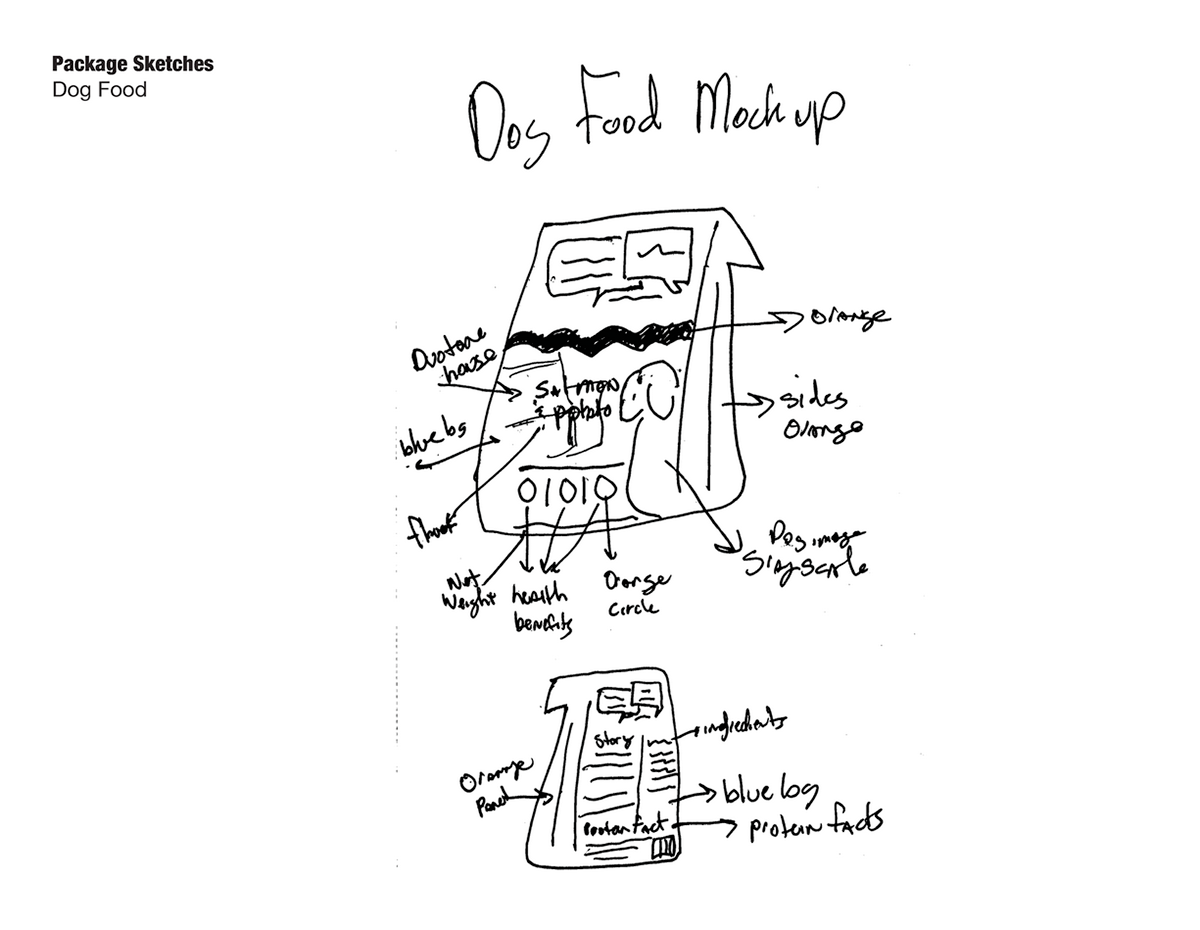 Package Sketches
Dog Food
Dog Food Mockup
Orange
Duotone
house
Salmon
& potato
sides
Orange
blue bg
Net
Weight
health
benefits
Orange
circle
Dog image
Grayscale
Story
ingredients
Orange
Panel
blue bg
protein fact
protein facts